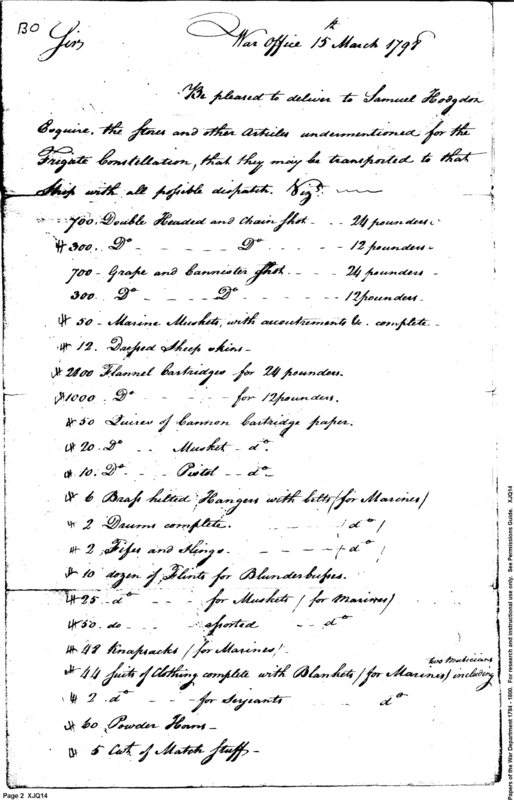 BO
Sir
War Office 15th March 1798
Be pleased to deliver to Samuel Hodgdon
Esquire. the Stores and other Articles undermentioned for the
Frigate Constellation, that they may be transported to that
Ship with all possible dispatch. Vizt.
700. Double Headed and Chain Shot - - - 24 pounders.
300. Do - - - Do - - - 12 pounders -
700 - Grape and Cannister Shot - - - 24 pounders -
300. Do - - - Do - - - 12 pounders -
50 - Marine Muskets, with accoutrements &c. complete -
12. Dressed Sheep skins -
2800 Flannel Cartridges for 24 pounders.
1000 Do - - - for 12 pounders.
50 Quires of Cannon Cartridge paper.
20. Do - - Musket - do -
10. Do - - Pistol - - do -
6 Brass hilted Hangers with belts (for Marines)
2 Drums complete. - - - (do)
2 Fifes and Slings. - - - (do)
10 dozen of Flints for Blunderbusses.
25 - do - - for Muskets (for Marines)
50. do - - assorted - do -
48 Knapsacks (for Marines)
two Musicians
44 Suits of Clothing complete with Blankets (for Marines) including
2 do - - for Serjeants do
60 Powder Horns -
5 Cwt. of Match Stuff -
Page 2 XJQ14
Papers of the War Department 1784 - 1800. For research and instructional use only. See Permissions Guide. XJQ14